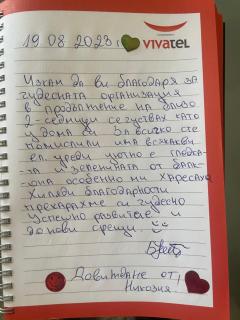 19 08 2023г.
VIVATEL
Искам да ви благодаря за
чудесната организация
в продължение на близо
2-седмици се чуствах като
у дома си. За всичко сте
помислили има всякакви
ел. уреди уютно е гледка-
та и зеленината от бал-
кона особено ми харесаха
Хиляди благодарности
прекарахме си чудесно
Успешно развитие и
до нови срещи.
Довиждане от
Никозия!